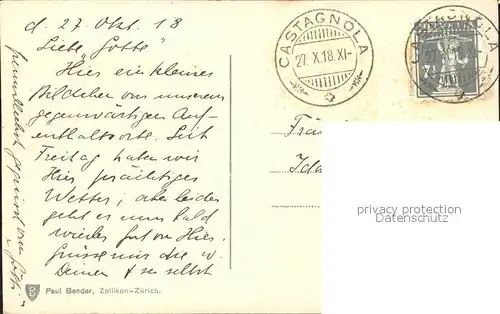 d. 27 Okt. 18
Liebe Gotte!
Hier ein kleines
Bildchen von unserem
gegenwärtigen Auf-
enthaltsorte. Seit
Freitag haben wir
Hier prächtiges
Wetter, aber leider
geht es nun bald
wieder fort von Hier.
Grüsse mir die
Deinen & sei selbst
freundlichst gegrüsst von
CASTAGNOLA
27.X.18.XI-
CASTAGNOLA
27
Frä
Ida
privacy protection
Datenschutz
Paul Bender, Zollikon-Zürich.